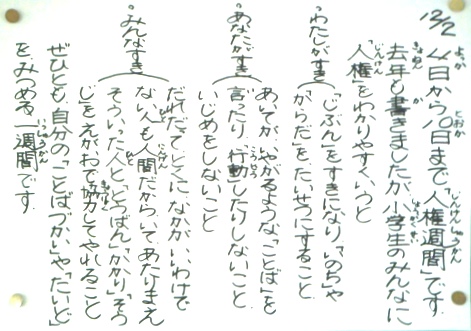 12/2
4日から10日まで、「人権週間」です。
去年も書きましたが、小学生のみんなに
「人権」をわかりやすくいうと
・わたしがすき
「じぶん」をすきになり、「いのち」や
「からだ」をたいせつにすること
・あなたがすき
あいてが、いやがるような「ことば」を
言ったり、「行動」したりしないこと
いじめをしないこと
・みんなすき
だれだって、とくに、なかがいいわけで
ない人も人間だから、いてあたりまえ
そういった人と、「とうばん」「かかり」「そう
じ」をえがおで協力してやれること
ぜひとも、自分の「ことばづかい」や「たいど」
を、みつめる一週間です